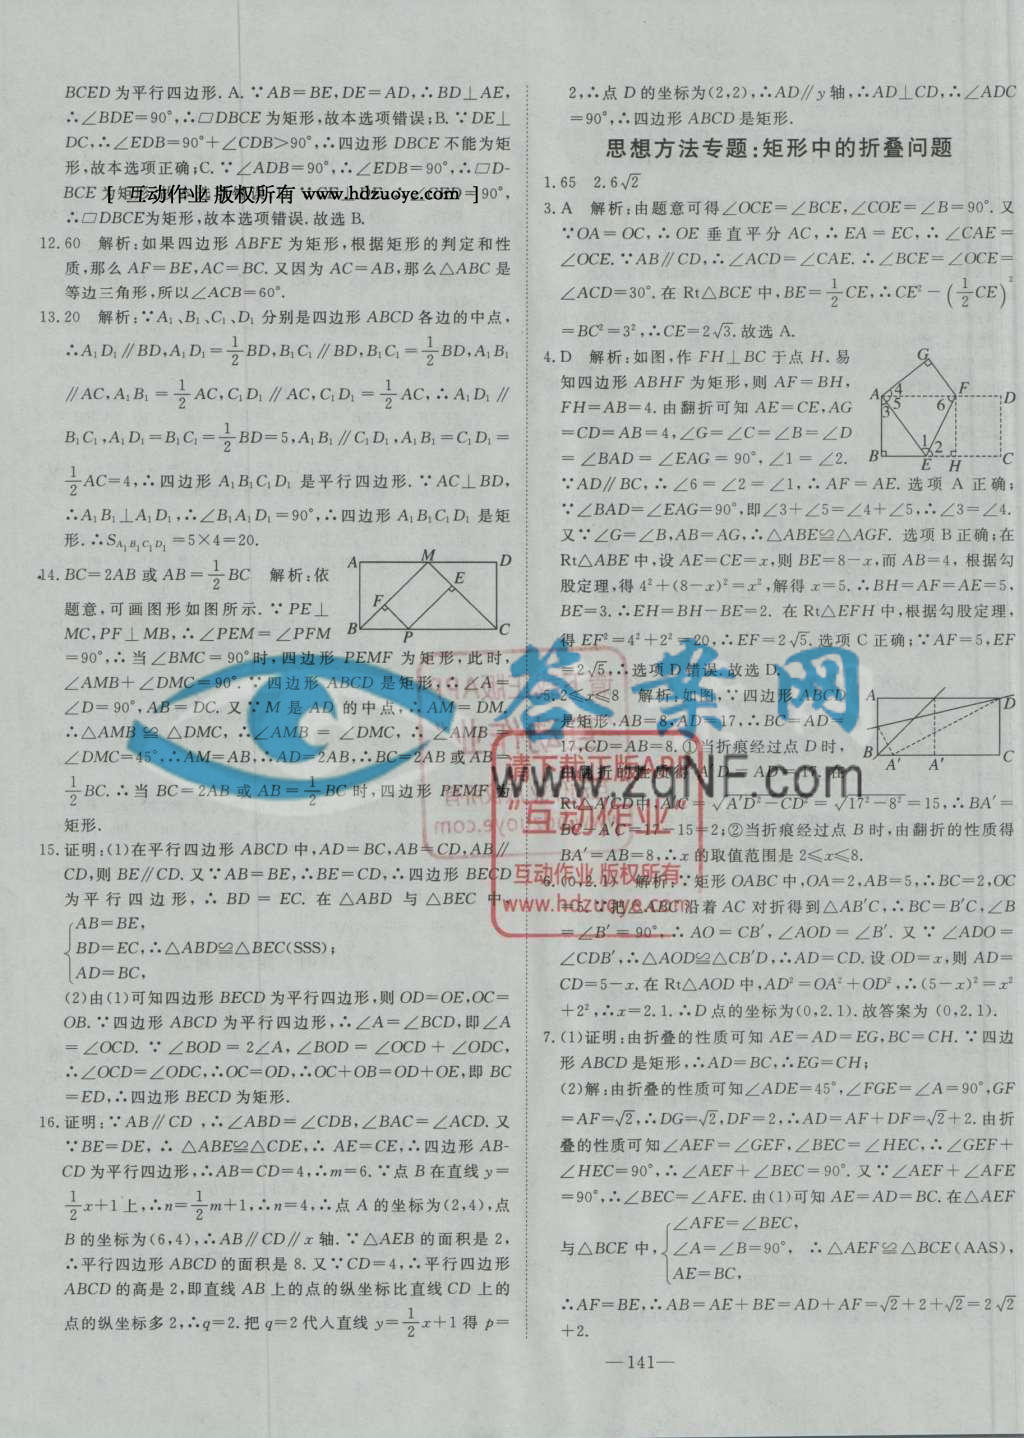 BCED 为平行四边形. A. ∵AB=BE,DE=AD,∴BD⊥AE,
∴∠BDE=90°,∴□DBCE 为矩形,故本选项错误;B. ∵DE⊥
DC,∴∠EDB=90°+∠CDB>90°,∴四边形 DBCE 不能为矩
形,故本选项正确;C. ∵∠ADB=90°,∴∠EDB=90°,∴□D-
[ 互动作业 版权所有 www.hdzuoye.com ]
∴□DBCE为矩形,故本选项错误.故选 B.
12.60 解析:如果四边形 ABFE 为矩形,根据矩形的判定和性
质,那么 AF=BE,AC=BC. 又因为 AC=AB,那么△ABC 是
等边三角形,所以∠ACB=60°.
13.20 解析:∵A₁、B₁、C₁、D₁ 分别是四边形 ABCD 各边的中点,
∴A₁D₁∥BD,A₁D₁=1/2BD,B₁C₁∥BD,B₁C₁=1/2BD,A₁B₁
∥AC,A₁B₁=1/2AC,C₁D₁∥AC,C₁D₁=1/2AC,∴A₁D₁∥
B₁C₁,A₁D₁=B₁C₁=1/2BD=5,A₁B₁∥C₁D₁,A₁B₁=C₁D₁=
1/2AC=4,∴四边形 A₁B₁C₁D₁ 是平行四边形. ∵AC⊥BD,
∴A₁B₁⊥A₁D₁,∴∠B₁A₁D₁=90°,∴四边形 A₁B₁C₁D₁ 是矩
形. ∴S_A₁B₁C₁D₁=5×4=20.
14.BC=2AB 或 AB=1/2BC 解析:依
题意,可画图形如图所示. ∵PE⊥
MC,PF⊥MB,∴∠PEM=∠PFM
=90°,∴当∠BMC=90°时,四边形 PEMF 为矩形,此时,
∠AMB+∠DMC=90°. ∵四边形 ABCD 是矩形,∴∠A=
∠D=90°,AB=DC. 又∵M 是 AD 的中点,∴AM=DM,
∴△AMB≌△DMC,∴∠AMB=∠DMC,∴∠AMB=
∠DMC=45°,∴AM=AB,∴AD=2AB,∴BC=2AB 或 AB=
1/2BC. ∴当 BC=2AB 或 AB=1/2BC 时,四边形 PEMF 为
矩形.
A M D
E
F
B P C
15.证明:(1)在平行四边形 ABCD 中,AD=BC,AB=CD,AB∥
CD,则 BE∥CD. 又∵AB=BE,∴BE=CD,∴四边形 BECD
为平行四边形,∴BD=EC. 在△ABD 与△BEC 中,
AB=BE,
BD=EC,∴△ABD≌△BEC(SSS);
AD=BC,
(2)由(1)可知四边形 BECD 为平行四边形,则 OD=OE,OC=
OB. ∵四边形 ABCD 为平行四边形,∴∠A=∠BCD,即∠A
=∠OCD. ∵∠BOD=2∠A,∠BOD=∠OCD+∠ODC,
∴∠OCD=∠ODC,∴OC=OD,∴OC+OB=OD+OE,即 BC
=ED,∴四边形 BECD 为矩形.
16.证明:∵AB∥CD,∴∠ABD=∠CDB,∠BAC=∠ACD. 又
∵BE=DE,∴△ABE≌△CDE,∴AE=CE,∴四边形 AB-
CD 为平行四边形,∴AB=CD=4,∴m=6. ∵点 B 在直线 y=
1/2x+1 上,∴n=1/2m+1,∴n=4,∴点 A 的坐标为(2,4),点
B 的坐标为(6,4),∴AB∥CD∥x 轴. ∵△AEB 的面积是 2,
∴平行四边形 ABCD 的面积是 8. 又∵CD=4,∴平行四边形
ABCD 的高是 2,即直线 AB 上的点的纵坐标比直线 CD 上的
点的纵坐标多 2,∴q=2. 把 q=2 代入直线 y=1/2x+1 得 p=
2,∴点 D 的坐标为(2,2),∴AD∥y 轴,∴AD⊥CD,∴∠ADC
=90°,∴四边形 ABCD 是矩形.
思想方法专题:矩形中的折叠问题
1.65 2.6√2
3.A 解析:由题意可得∠OCE=∠BCE,∠COE=∠B=90°. 又
∵OA=OC,∴OE 垂直平分 AC,∴EA=EC,∴∠CAE=
∠OCE. ∵AB∥CD,∴∠ACD=∠CAE. ∴∠BCE=∠OCE=
∠ACD=30°. 在 Rt△BCE 中,BE=1/2CE,∴CE²-(1/2CE)²
=BC²=3²,∴CE=2√3. 故选 A.
4.D 解析:如图,作 FH⊥BC 于点 H. 易
知四边形 ABHF 为矩形,则 AF=BH,
FH=AB=4. 由翻折可知 AE=CE,AG
=CD=AB=4,∠G=∠C=∠B=∠D
=∠BAD=∠EAG=90°,∠1=∠2.
∵AD∥BC,∴∠6=∠2=∠1,∴AF=AE. 选项 A 正确;
∵∠BAD=∠EAG=90°,即∠3+∠5=∠4+∠5,∴∠3=∠4.
又∵∠G=∠B,AB=AG,∴△ABE≌△AGF. 选项 B 正确;在
Rt△ABE 中,设 AE=CE=x,则 BE=8-x,而 AB=4,根据勾
股定理,得 4²+(8-x)²=x²,解得 x=5. ∴BH=AF=AE=5,
BE=3. ∴EH=BH-BE=2. 在 Rt△EFH 中,根据勾股定理,
得 EF²=4²+2²=20,∴EF=2√5. 选项 C 正确;∵AF=5,EF
=2√5,∴选项 D 错误. 故选 D.
G
A 4 F D
5 6
3
1 2
B E H C
5.2≤x≤8 解析:如图,∵四边形 ABCD
是矩形,AB=8,AD=17,∴BC=AD=
17,CD=AB=8. ①当折痕经过点 D 时,
由翻折的性质得 A′D=AD=17. 在
Rt△A′CD 中,A′C=√A′D²-CD²=√17²-8²=15,∴BA′=
BC-A′C=17-15=2;②当折痕经过点 B 时,由翻折的性质得
BA′=AB=8,∴x 的取值范围是 2≤x≤8.
A D
B A′ A′ C
6.(0,2.1) 解析:∵矩形 OABC 中,OA=2,AB=5,∴BC=2,OC
=5. ∵把△ABC 沿着 AC 对折得到△AB′C,∴BC=B′C,∠B
=∠B′=90°,∴AO=CB′,∠AOD=∠B′. 又∵∠ADO=
∠CDB′,∴△AOD≌△CB′D,∴AD=CD. 设 OD=x,则 AD=
CD=5-x. 在 Rt△AOD 中,AD²=OA²+OD²,∴(5-x)²=x²
+2²,∴x=2.1. ∴D 点的坐标为(0,2.1). 故答案为 (0,2.1).
7.(1)证明:由折叠的性质可知 AE=AD=EG,BC=CH. ∵四边
形 ABCD 是矩形,∴AD=BC,∴EG=CH;
(2)解:由折叠的性质可知∠ADE=45°,∠FGE=∠A=90°,GF
=AF=√2,∴DG=√2,DF=2,∴AD=AF+DF=√2+2. 由折
叠的性质可知∠AEF=∠GEF,∠BEC=∠HEC,∴∠GEF+
∠HEC=90°,∴∠AEF+∠BEC=90°. 又∵∠AEF+∠AFE
=90°,∴∠BEC=∠AFE. 由(1)可知 AE=AD=BC. 在△AEF
∠AFE=∠BEC,
与△BCE 中, ∠A=∠B=90°, ∴△AEF≌△BCE(AAS),
AE=BC,
∴AF=BE,∴AB=AE+BE=AD+AF=√2+2+√2=2√2
+2.
答案网
www.zqNF.com
请下载正版APP
"互动作业"
互动作业 版权所有
www.hdzuoye.com
—141—